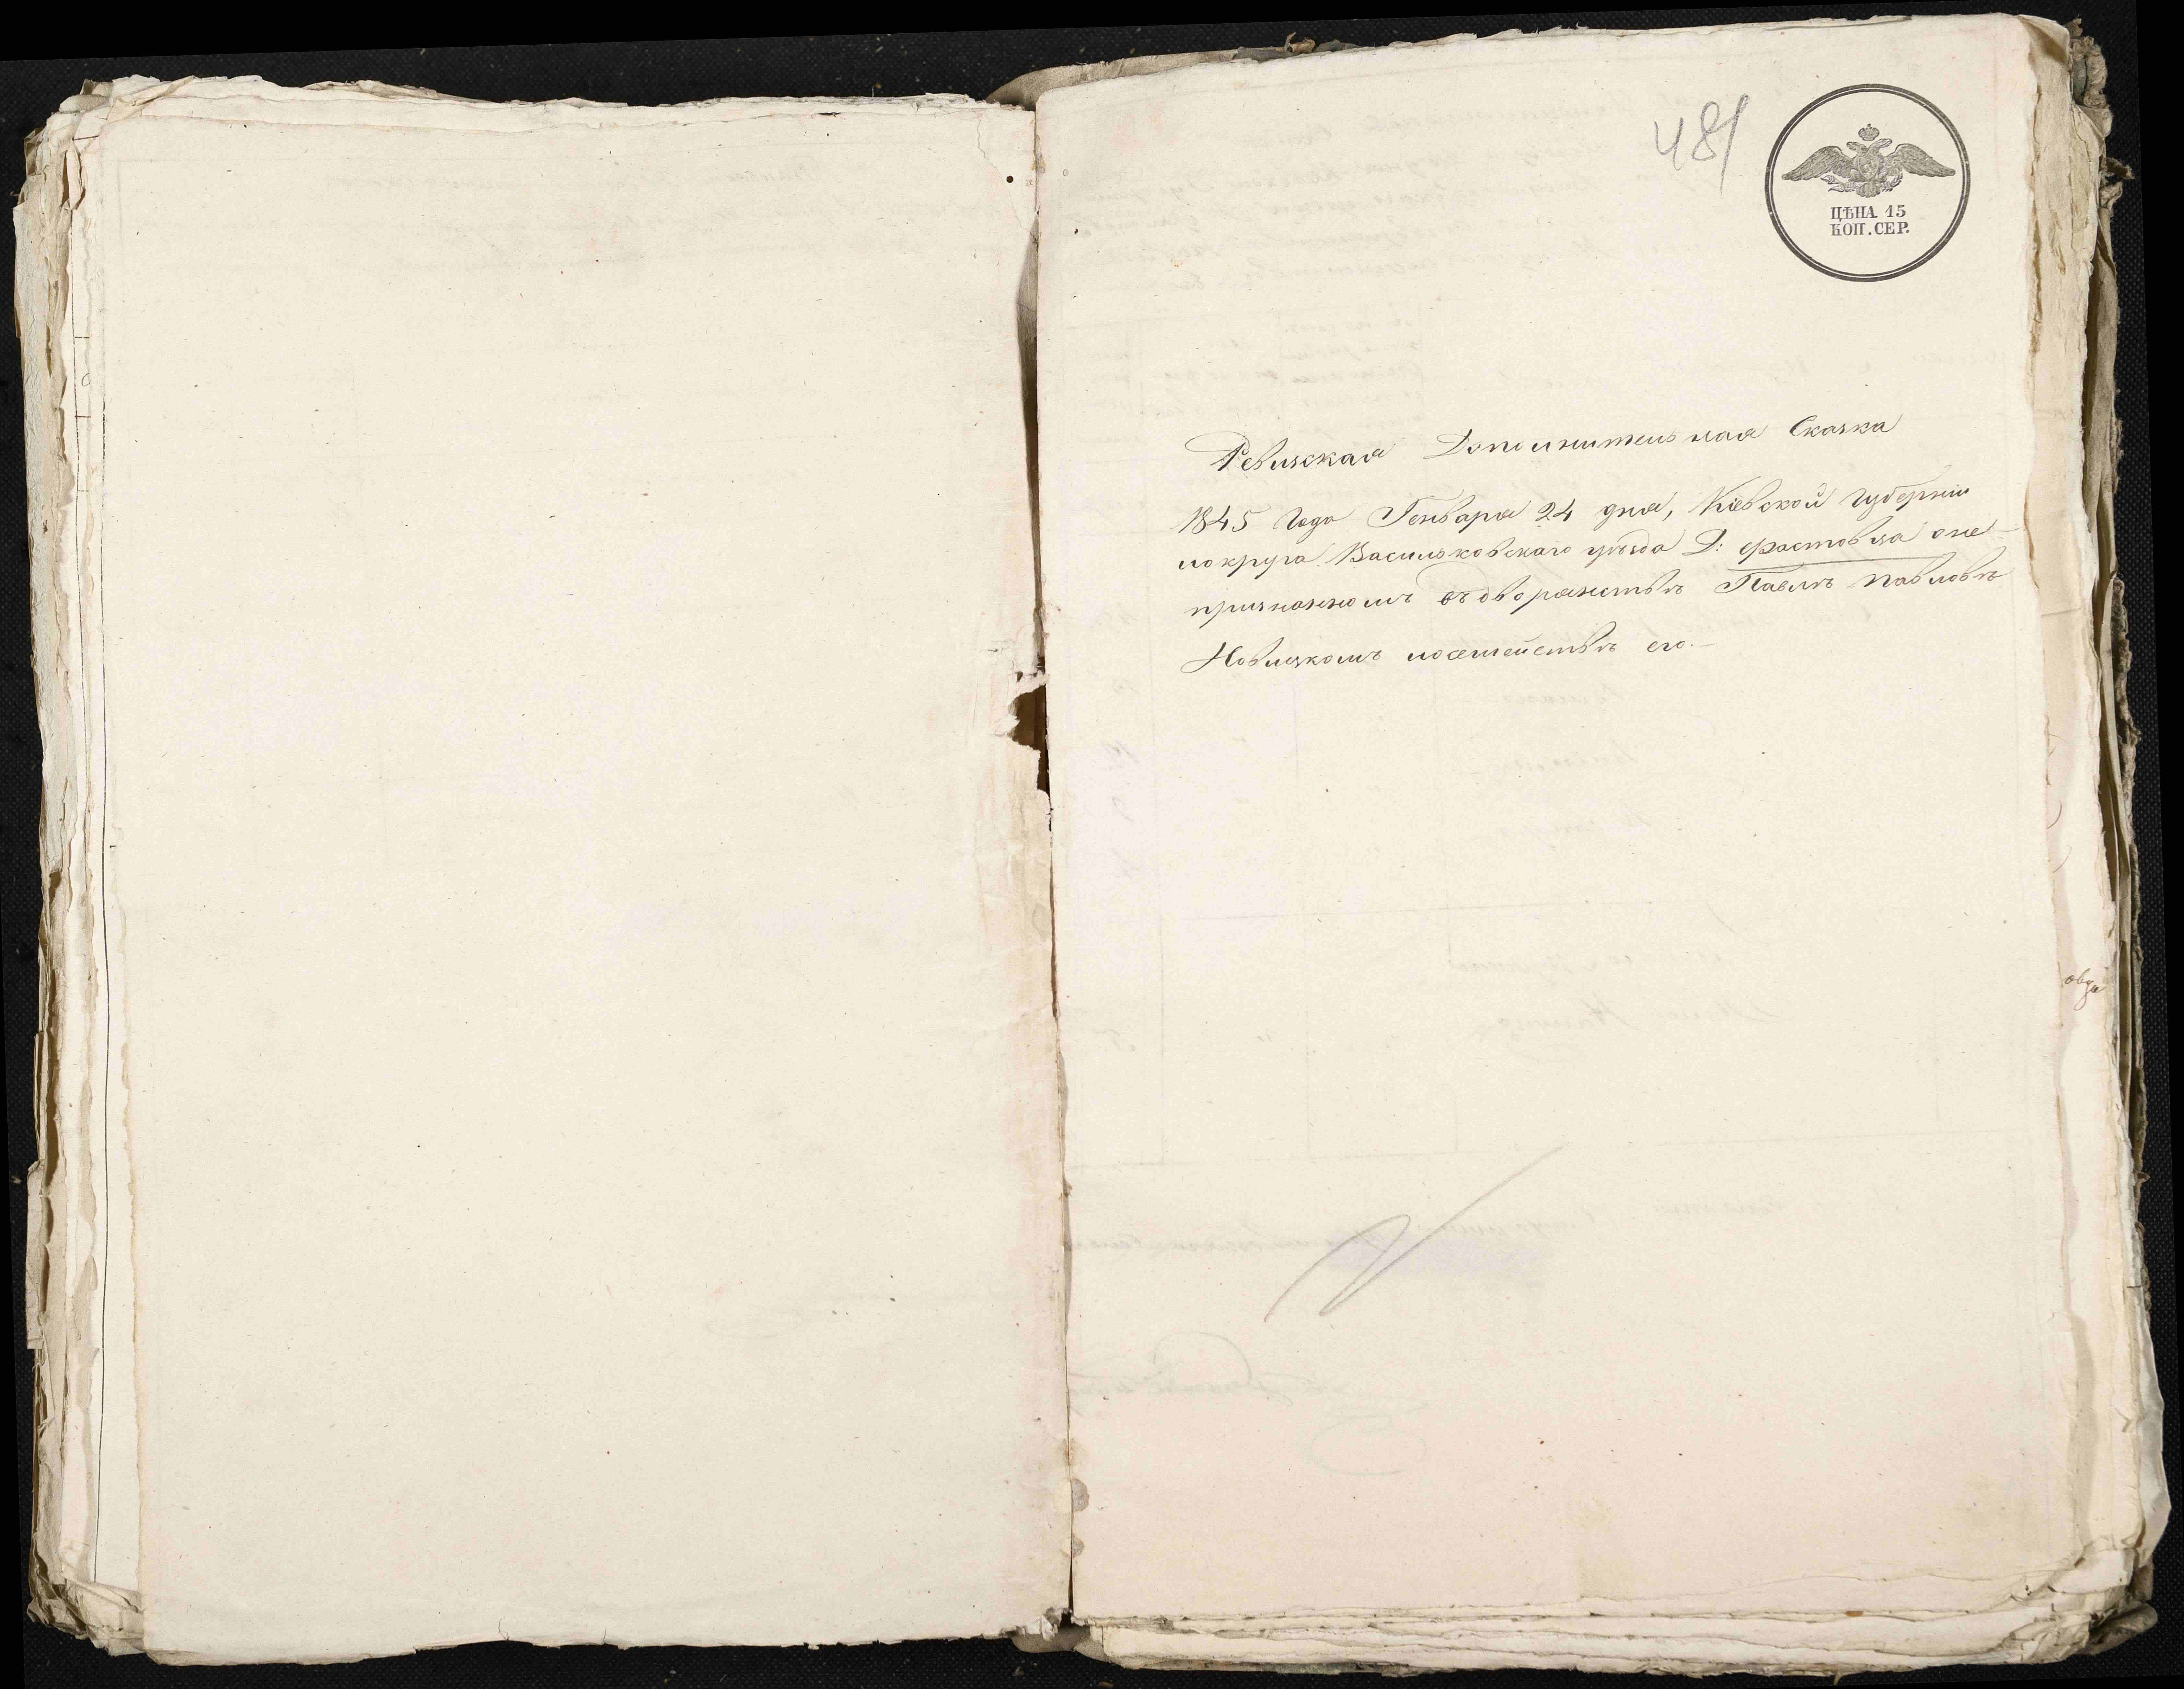 481
ЦѢНА 15
КОП. СЕР.
Ревизская Дополнительная Сказка
1845 Года Генваря 24 дня, Кіевской Губерніи
иокруга Васильковскаго уѣзда Д: Фастовца оне
признаномъ въдворянствѣ Павлѣ Павловѣ
Новицкомъ исемействѣ его.—